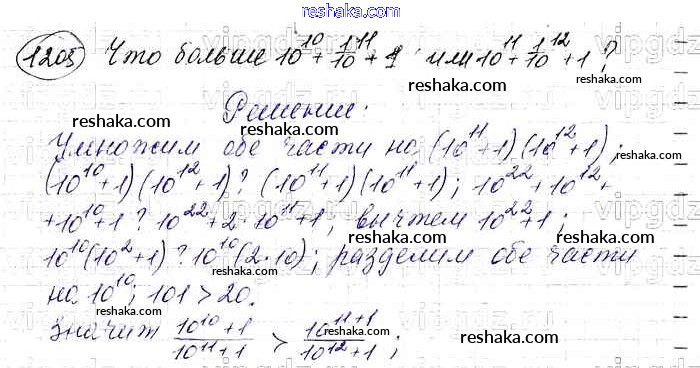 reshaka.com
1205 Что больше 10^10 + 1/10^11 + 1 или 10^11 + 1/10^12 + 1?
reshaka.com
Решение:
reshaka.com
Умножим обе части на (10^11+1)(10^12+1);
(10^10+1)(10^12+1)?(10^11+1)(10^11+1); 10^22+10^12+
reshaka.com
+10^10+1?10^22+2·10^11+1, вычтем 10^22+1;
reshaka.com
10^10(10^2+1)?10^10(2·10); разделим обе части
reshaka.com
на 10^10; 101>20.
reshaka.com
reshaka.com
значит (10^10+1)/(10^11+1) > (10^11+1)/(10^12+1);
reshaka.com
reshaka.com